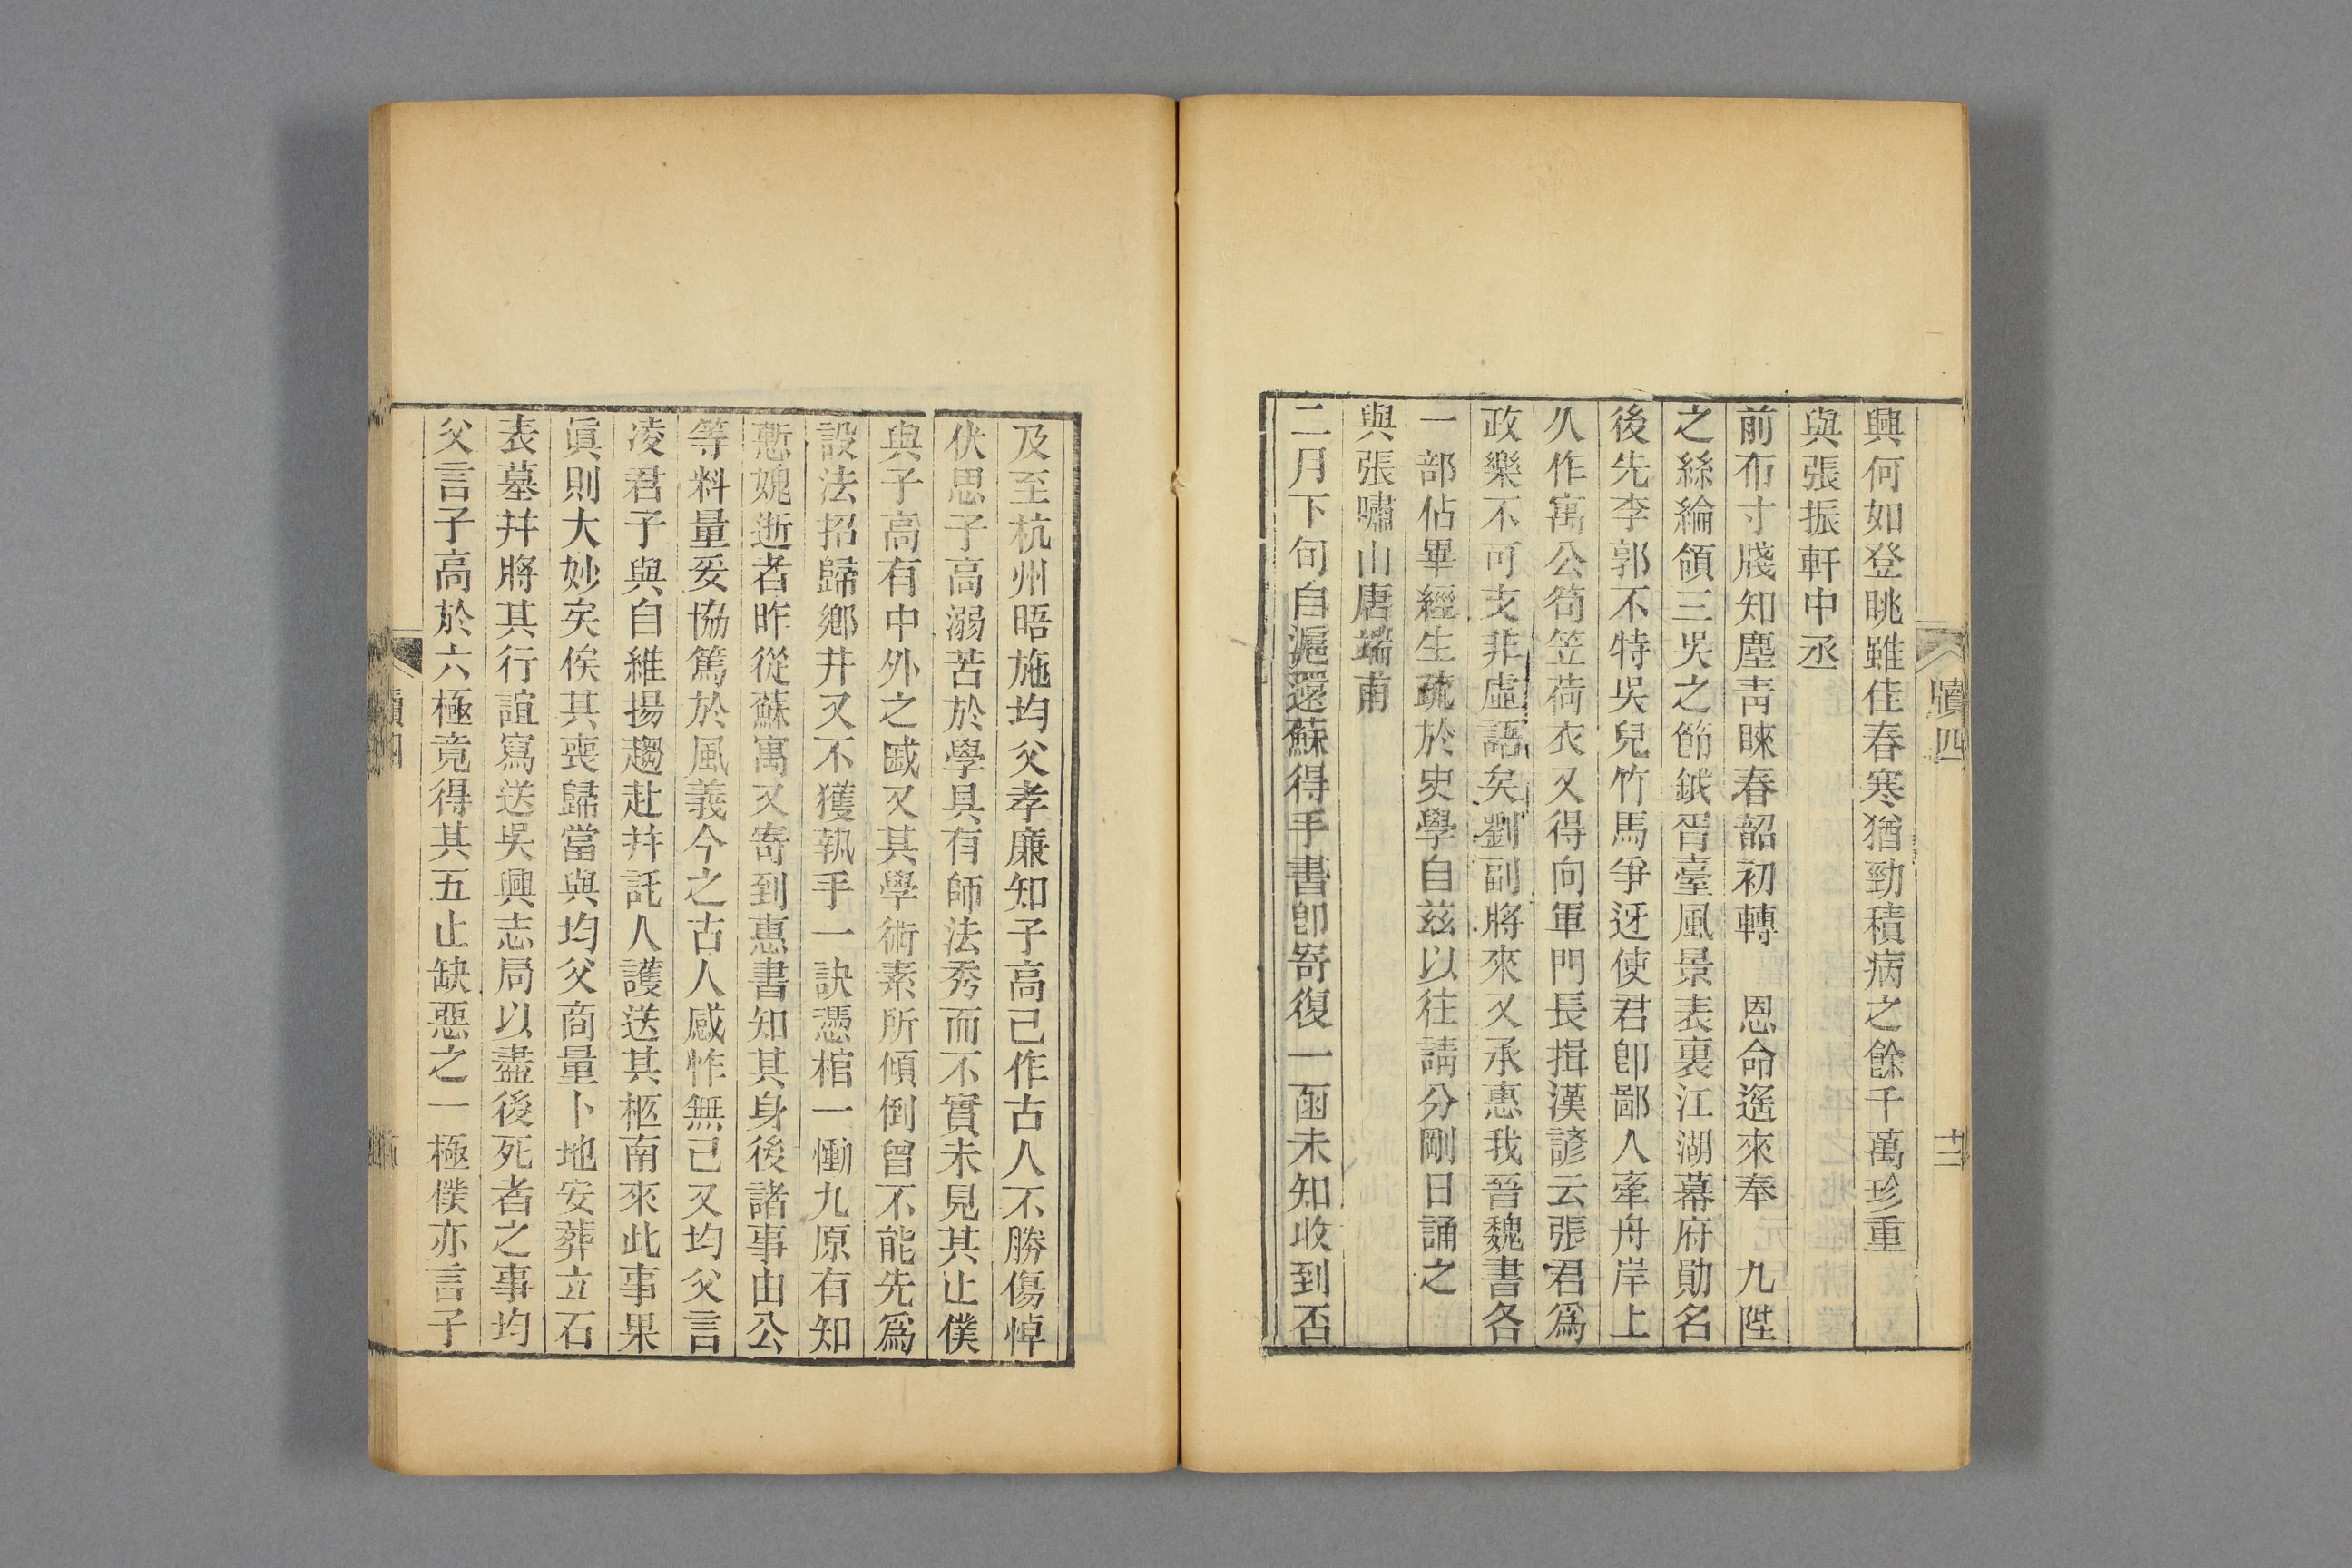 牘四
十三
興何如登眺雖佳春寒猶勁積病之餘千萬珍重
與張振軒中丞
前布寸牋知塵靑睞春韶初轉　恩命遙來奉　九陛
之絲綸領三吳之節鉞胥臺風景表裏江湖幕府勛名
後先李郭不特吳兒竹馬爭迓使君卽鄙人牽舟岸上
久作寓公笱笠荷衣又得向軍門長揖漢諺云張君爲
政樂不可支非虛語矣劉副將來又承惠我晉魏書各
一部佔畢經生疏於史學自茲以往請分剛日誦之
與張嘯山唐端甫
二月下旬自滬還蘇得手書卽寄復一函未知收到否
及至杭州晤施均父孝廉知子高已作古人不勝傷悼
伏思子高溺苦於學具有師法秀而不實未見其止僕
與子高有中外之戚又其學術素所傾倒曾不能先爲
設法招歸鄉井又不獲執手一訣憑棺一慟九原有知
慙媿逝者昨從蘇寓又寄到惠書知其身後諸事由公
等料量妥協篤於風義今之古人感怍無已又均父言
凌君子與自維揚趨赴幷託人護送其柩南來此事果
眞則大妙矣俟其喪歸當與均父商量卜地安葬立石
表墓幷將其行誼寫送吳興志局以盡後死者之事均
父言子高於六極竟得其五止缺惡之一極僕亦言子
牘四